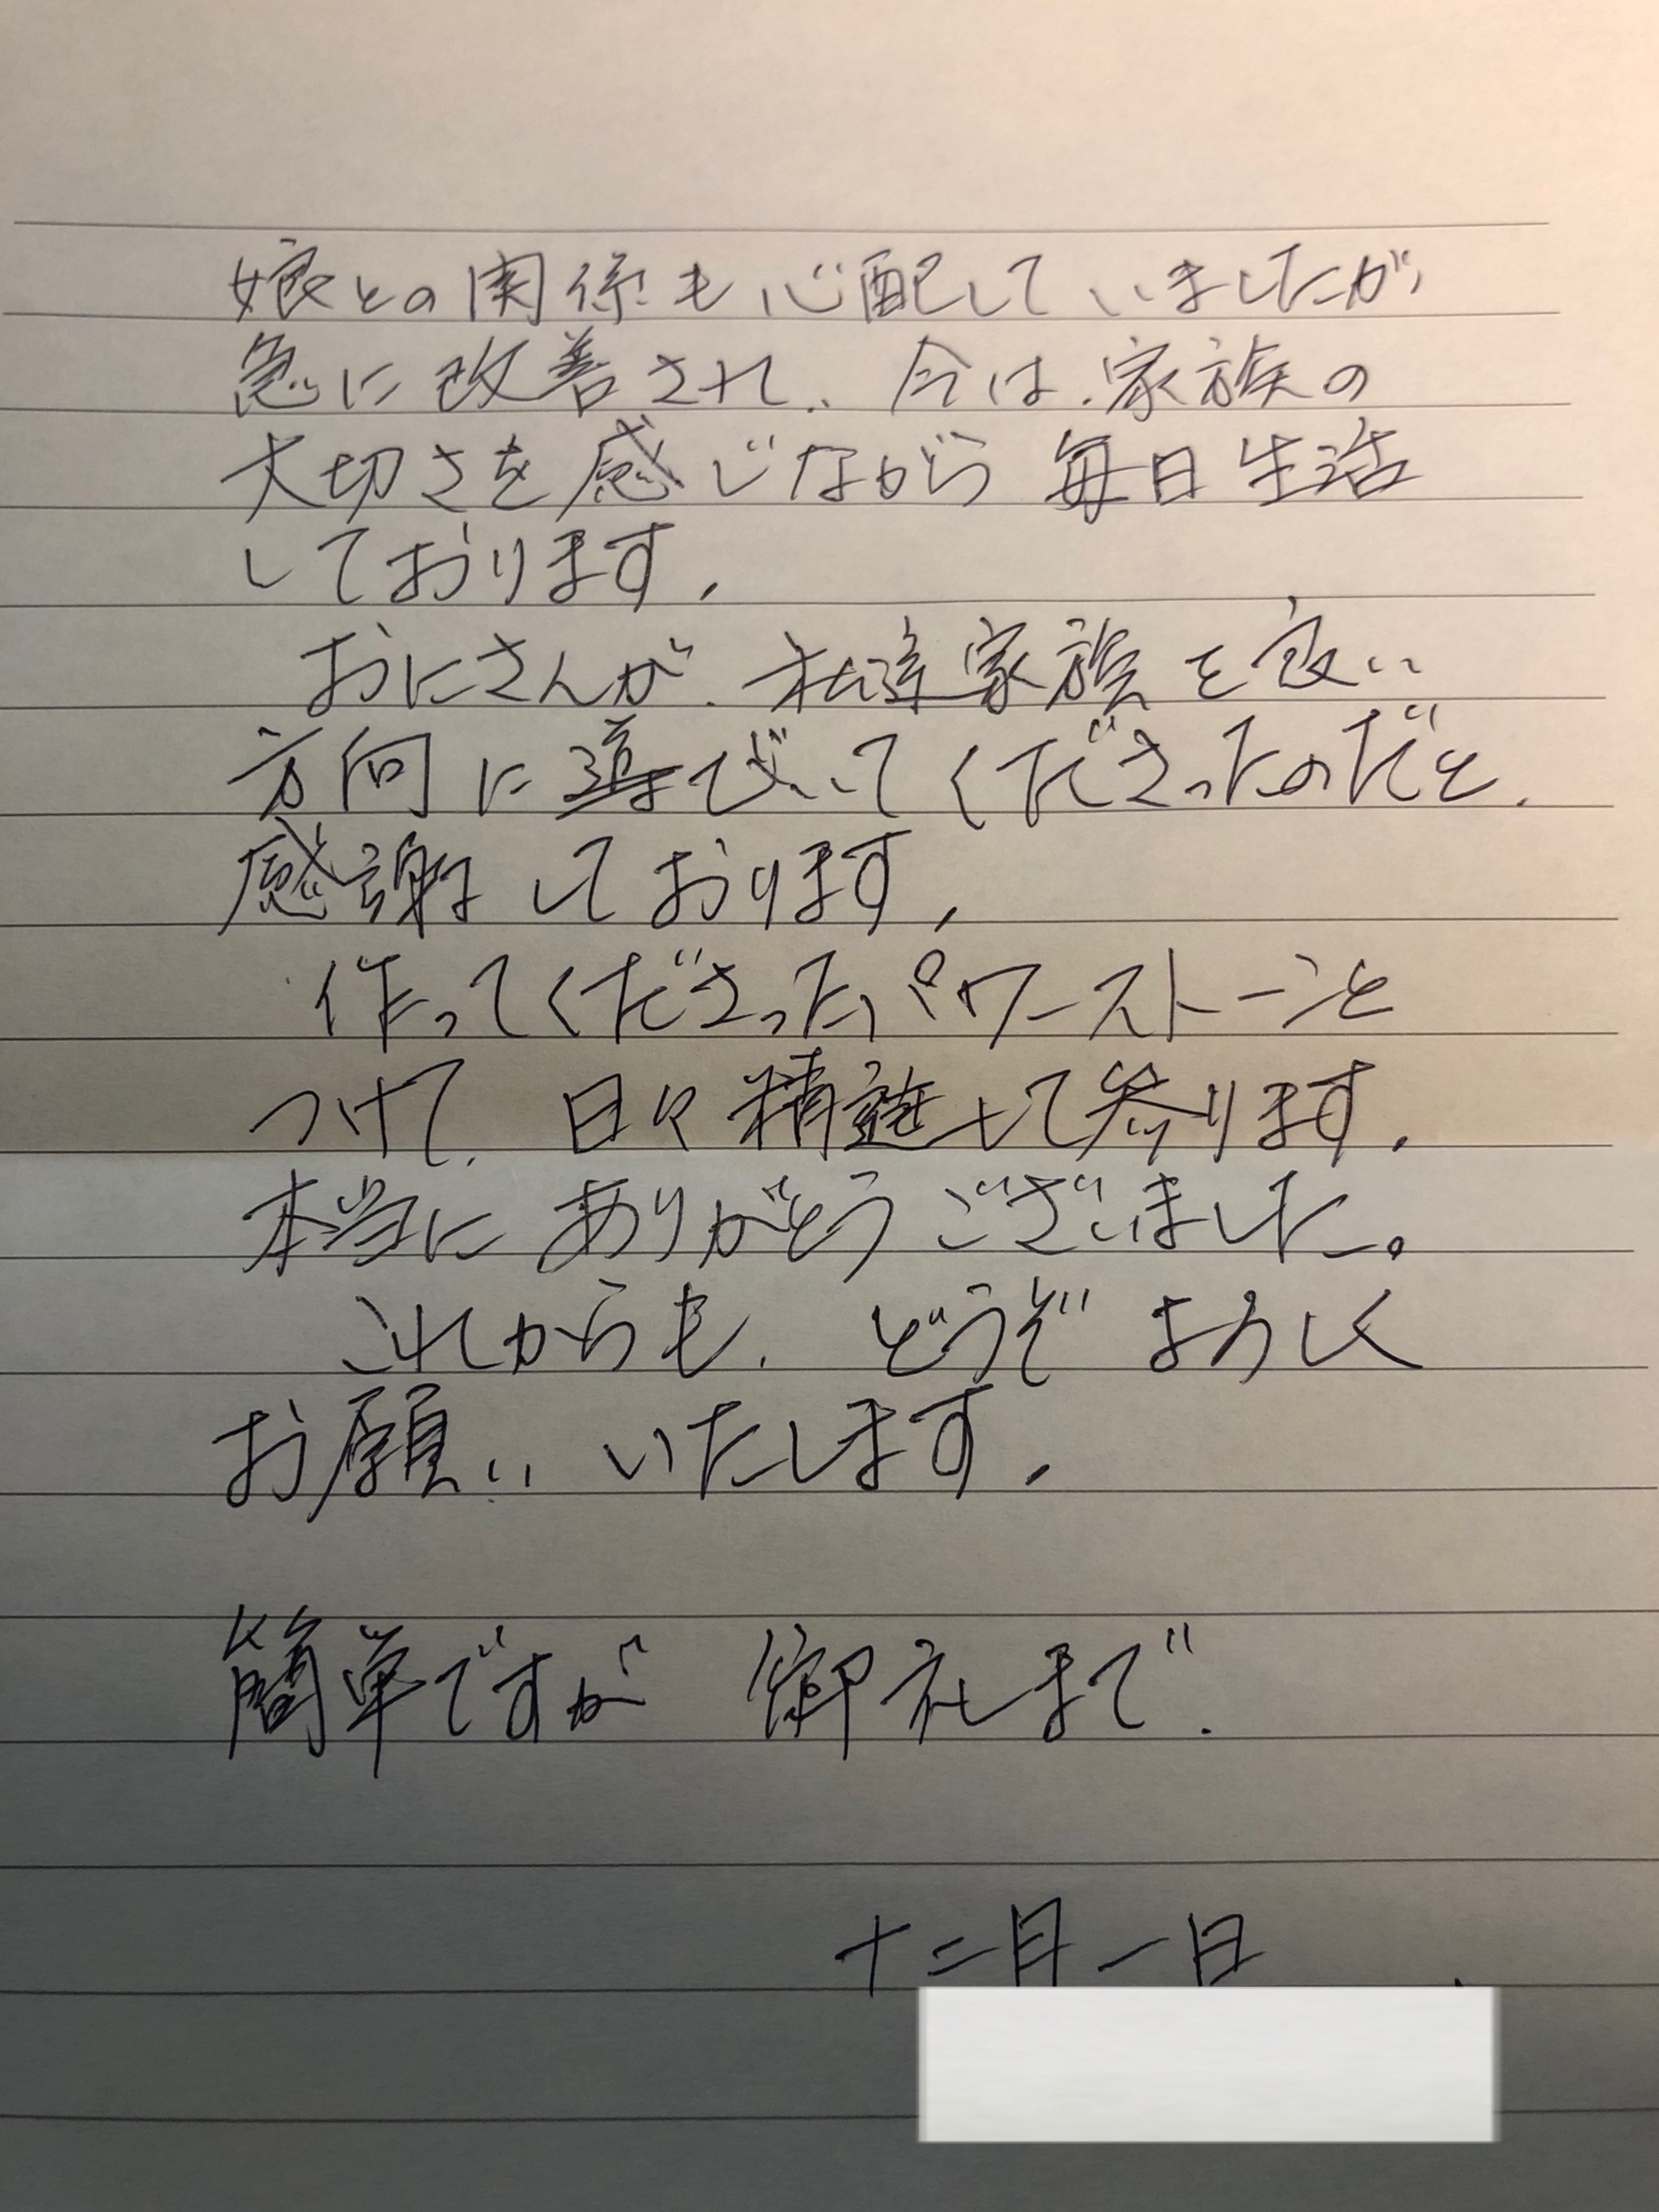 娘との関係も心配していましたが
急に改善され、今は、家族の
大切さを感じながら毎日生活
しております。
おにさんが、私達家族を良い
方向に導びいてくださったのだと、
感謝しております。
作ってくださったパワーストーンを
つけて、日々精進して参ります。
本当にありがとうございました。
これからも、どうぞよろしく
お願いいたします。
簡単ですが 御礼まで。
十二月一日